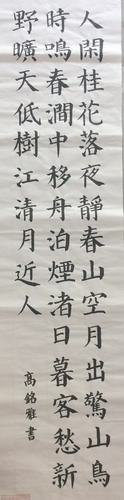 人閑桂花落夜靜春山空月出驚山鳥
時鳴春澗中移舟泊煙渚日暮客愁新
野曠天低樹江清月近人
高銘雅書